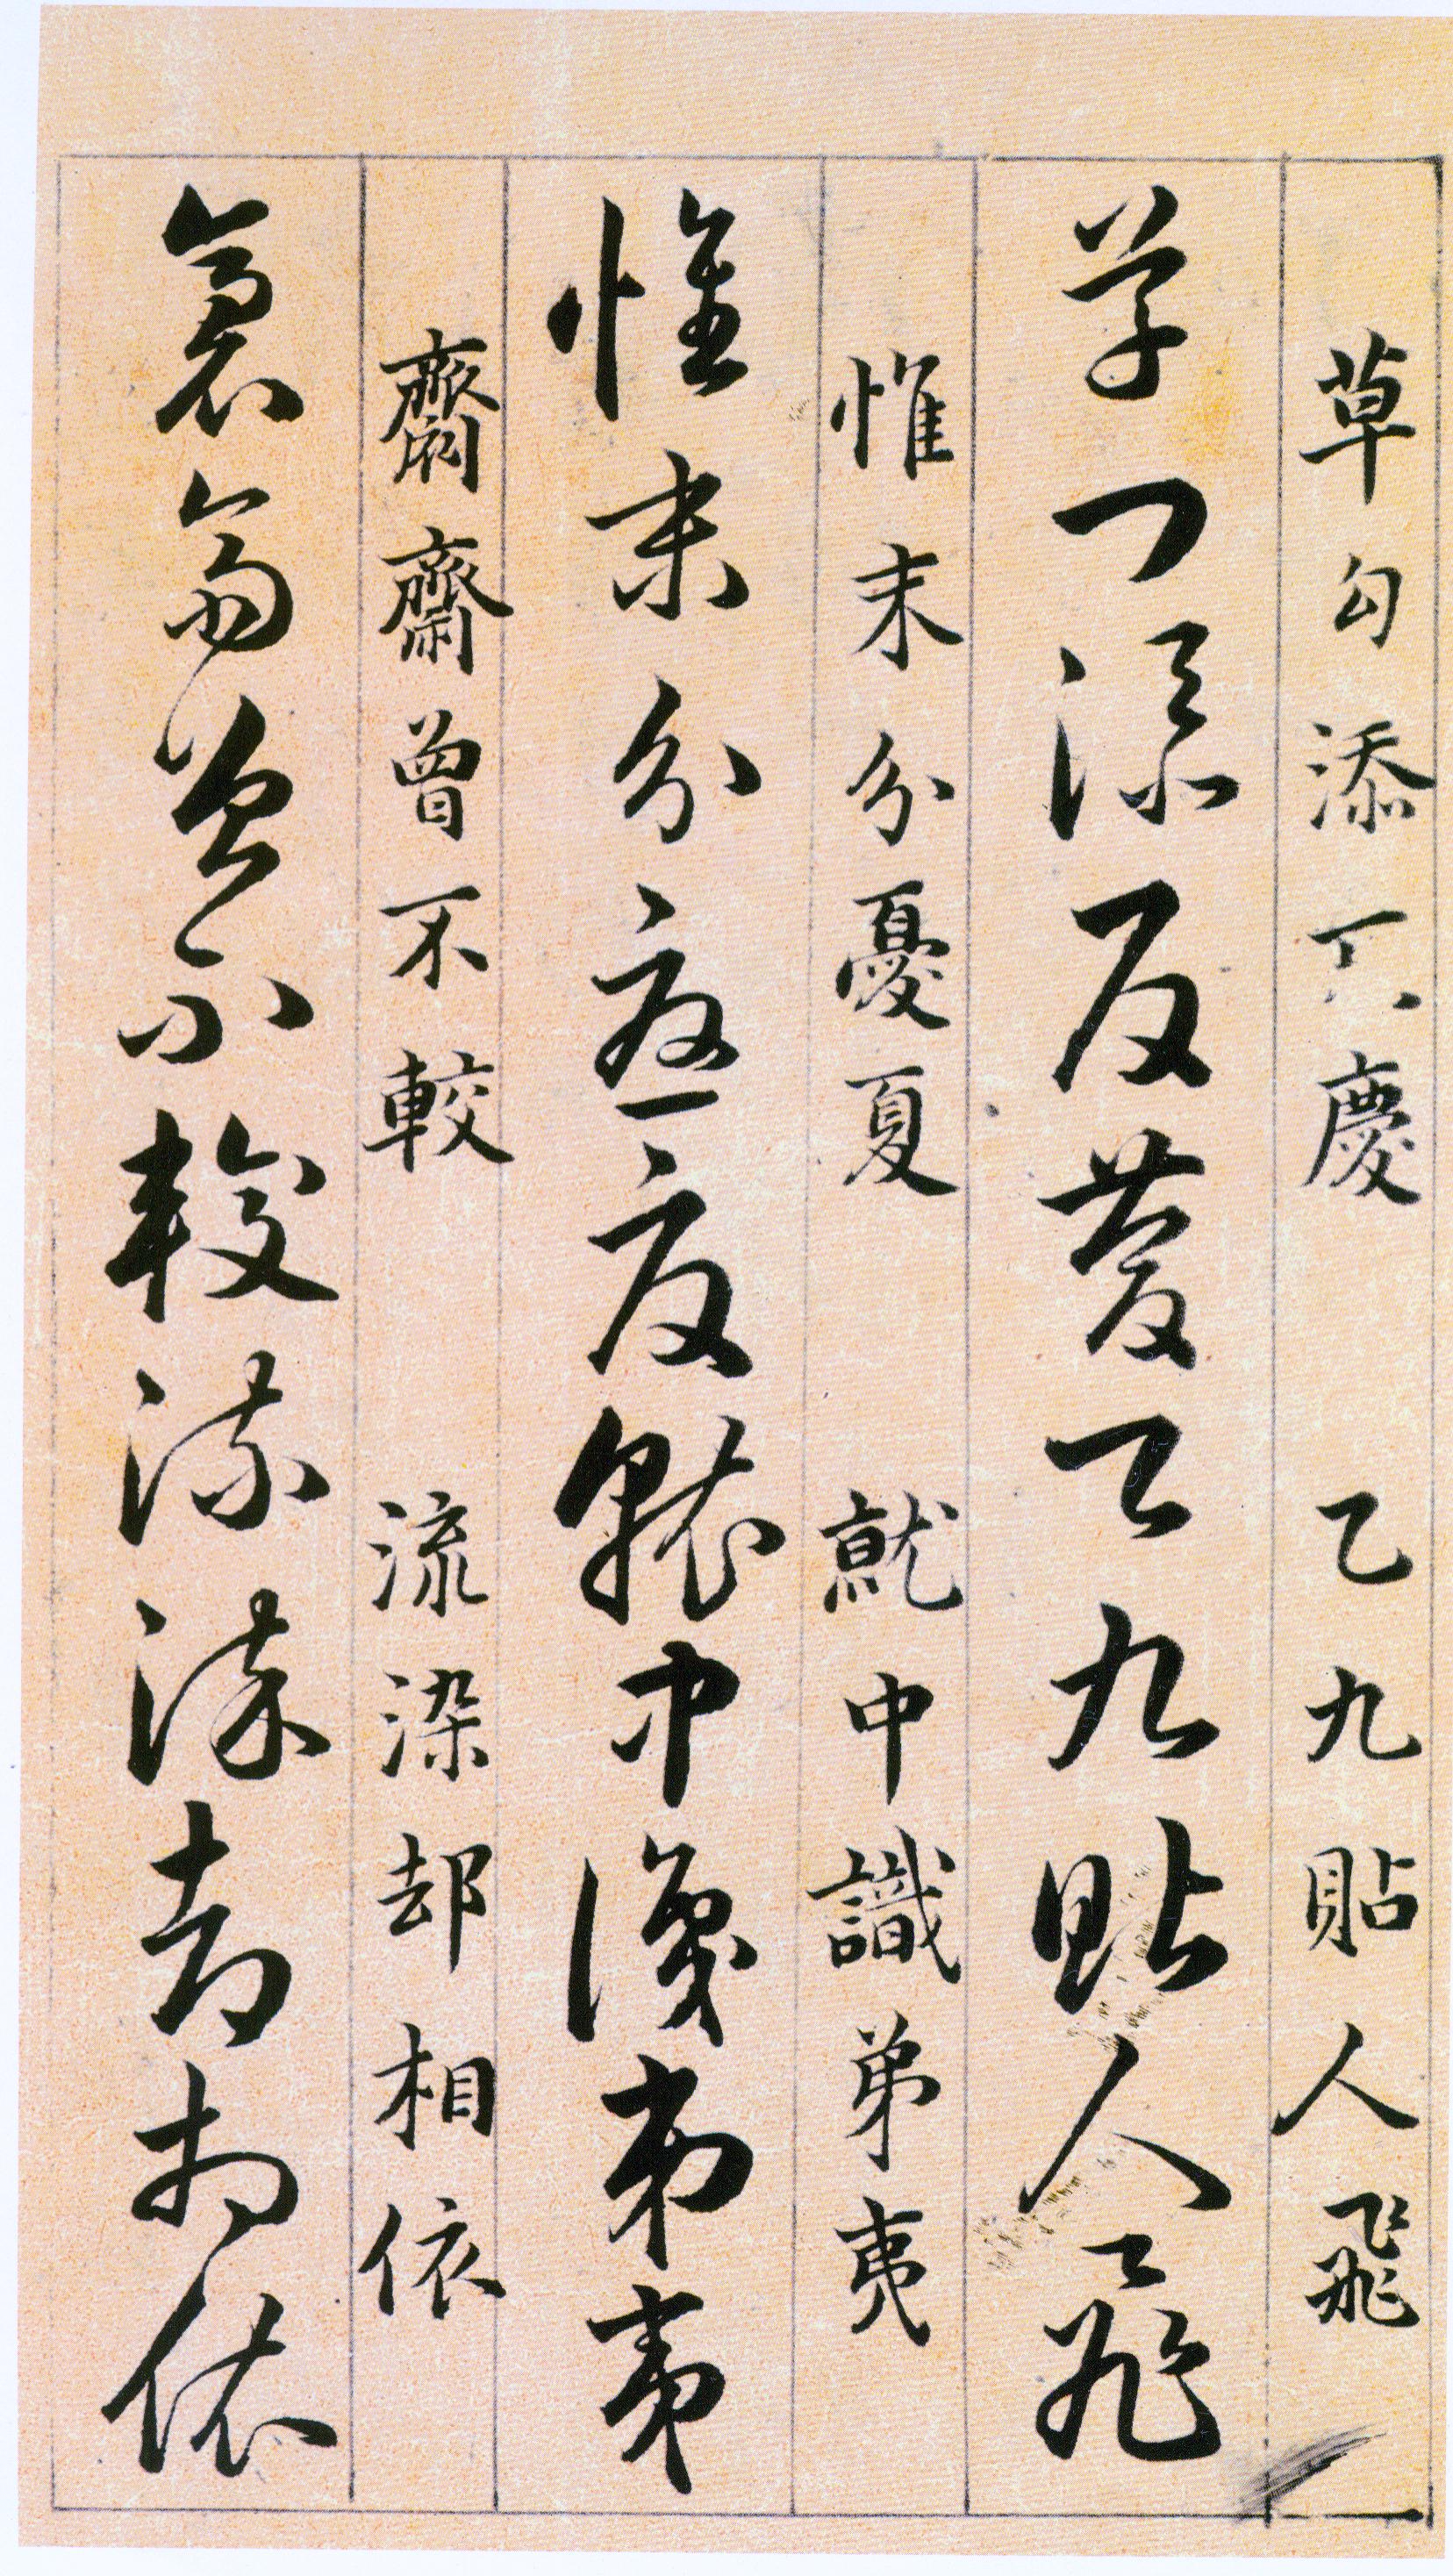 草勾添 慶　乙九貼人飛
草勾添反慶乙九貼人飛
惟末分憂夏　就中識弟夷
惟末分憂夏就中識弟夷
齋曾不較　流染却相依
齋曾不較流染却相依